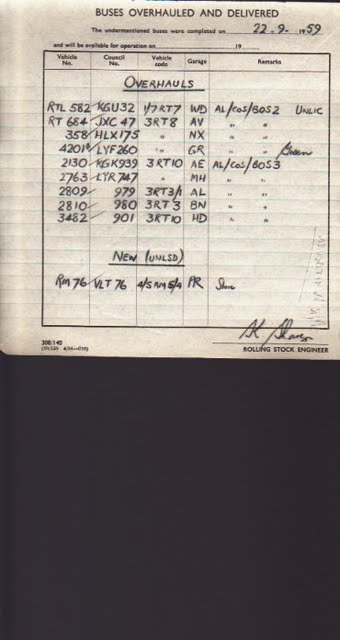 BUSES OVERHAULED AND DELIVERED
The undermentioned buses were completed on 22.9. 1959
and will be available for operation on 19
Vehicle No. Council No. Vehicle code Garage Remarks
OVERHAULS
RTL 582 KGU32 1/7RT7 WD AL/COS/BOS2 UNLIC
RT 684 JXC 47 3RT8 AV " "
358 HLX175 " NX " "
4201 LYF260 " GR " " Green
2130 KGK939 3RT10 AE AL/COS/BOS3
2763 LYR747 " MH " "
2809 979 3RT3/1 AL " "
2810 980 3RT3 BN " "
3482 901 3RT10 HD " "
NEW (UNLSD)
RM 76 VLT 76 4/5RM5/4 PR
ROLLING STOCK ENGINEER